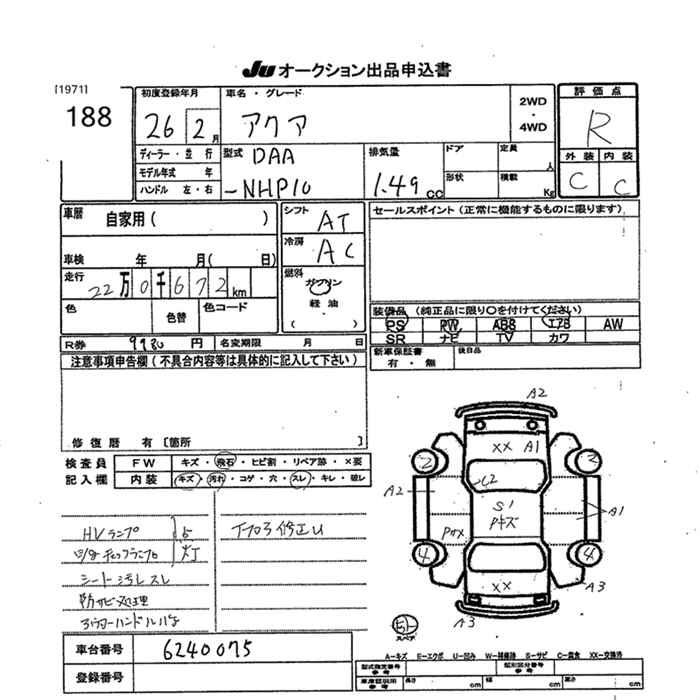 JU オークション出品申込書
[1971]
188
初度登録年月
26 2月
車名・グレード
アクア
2WD
・
4WD
評価点
R
外装 内装
C C
ディーラー・並行
モデル年式 年
ハンドル 左・右
型式 DAA
-NHP10
排気量
1.49 cc
ドア
形状
定員
人
積載
Kg
車歴 自家用( )
車検 年 月( 日)
走行 22万0千672km
色 色替 色コード
シフト AT
冷房 AC
燃料
ガソリン
軽油・
( )
セールスポイント(正常に機能するものに限ります)
装備品(純正品に限り○を付けてください)
PS PW ABS エアB AW
SR ナビ TV カワ
新車保証書 有・無
後日品
R券 9930円 名変期限 月 日
注意事項申告欄(不具合内容等は具体的に記入して下さい)
修復歴 有[箇所 ]
検査員 FW キズ・飛石・ヒビ割・リペア跡・×要
記入欄 内装 キズ・汚れ・コゲ・穴・スレ・キレ・破レ
HVランプ 点
チェックランプ 灯
シート汚レスレ
防サビ処理
下フロア修正U
A2
XX A1
2 2
C2
A2 S1 A1
Pキズ
4 4
XX
A3
A3
スペア
A-キズ E-エクボ U-凹み W-補修跡 S-サビ C-腐食 XX-交換済
車台番号 6240075
登録番号
型式指定番号 参考
類別区分番号 参考
車庫証明用 参考
長さ cm 幅 cm 高さ cm